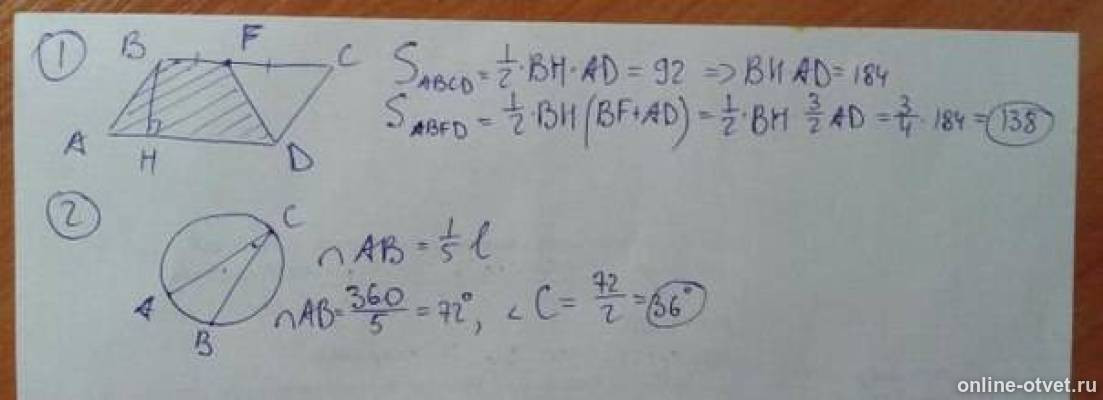 1 B F C
S ABCD = 1/2 · BH · AD = 92 => BH AD = 184
A H D
S ABFD = 1/2 · BH (BF + AD) = 1/2 · BH 3/2 AD = 3/4 · 184 = 138
2 C
∩ AB = 1/5 l
A B
∩ AB = 360/5 = 72°, < C = 72/2 = 36°
online-otvet.ru